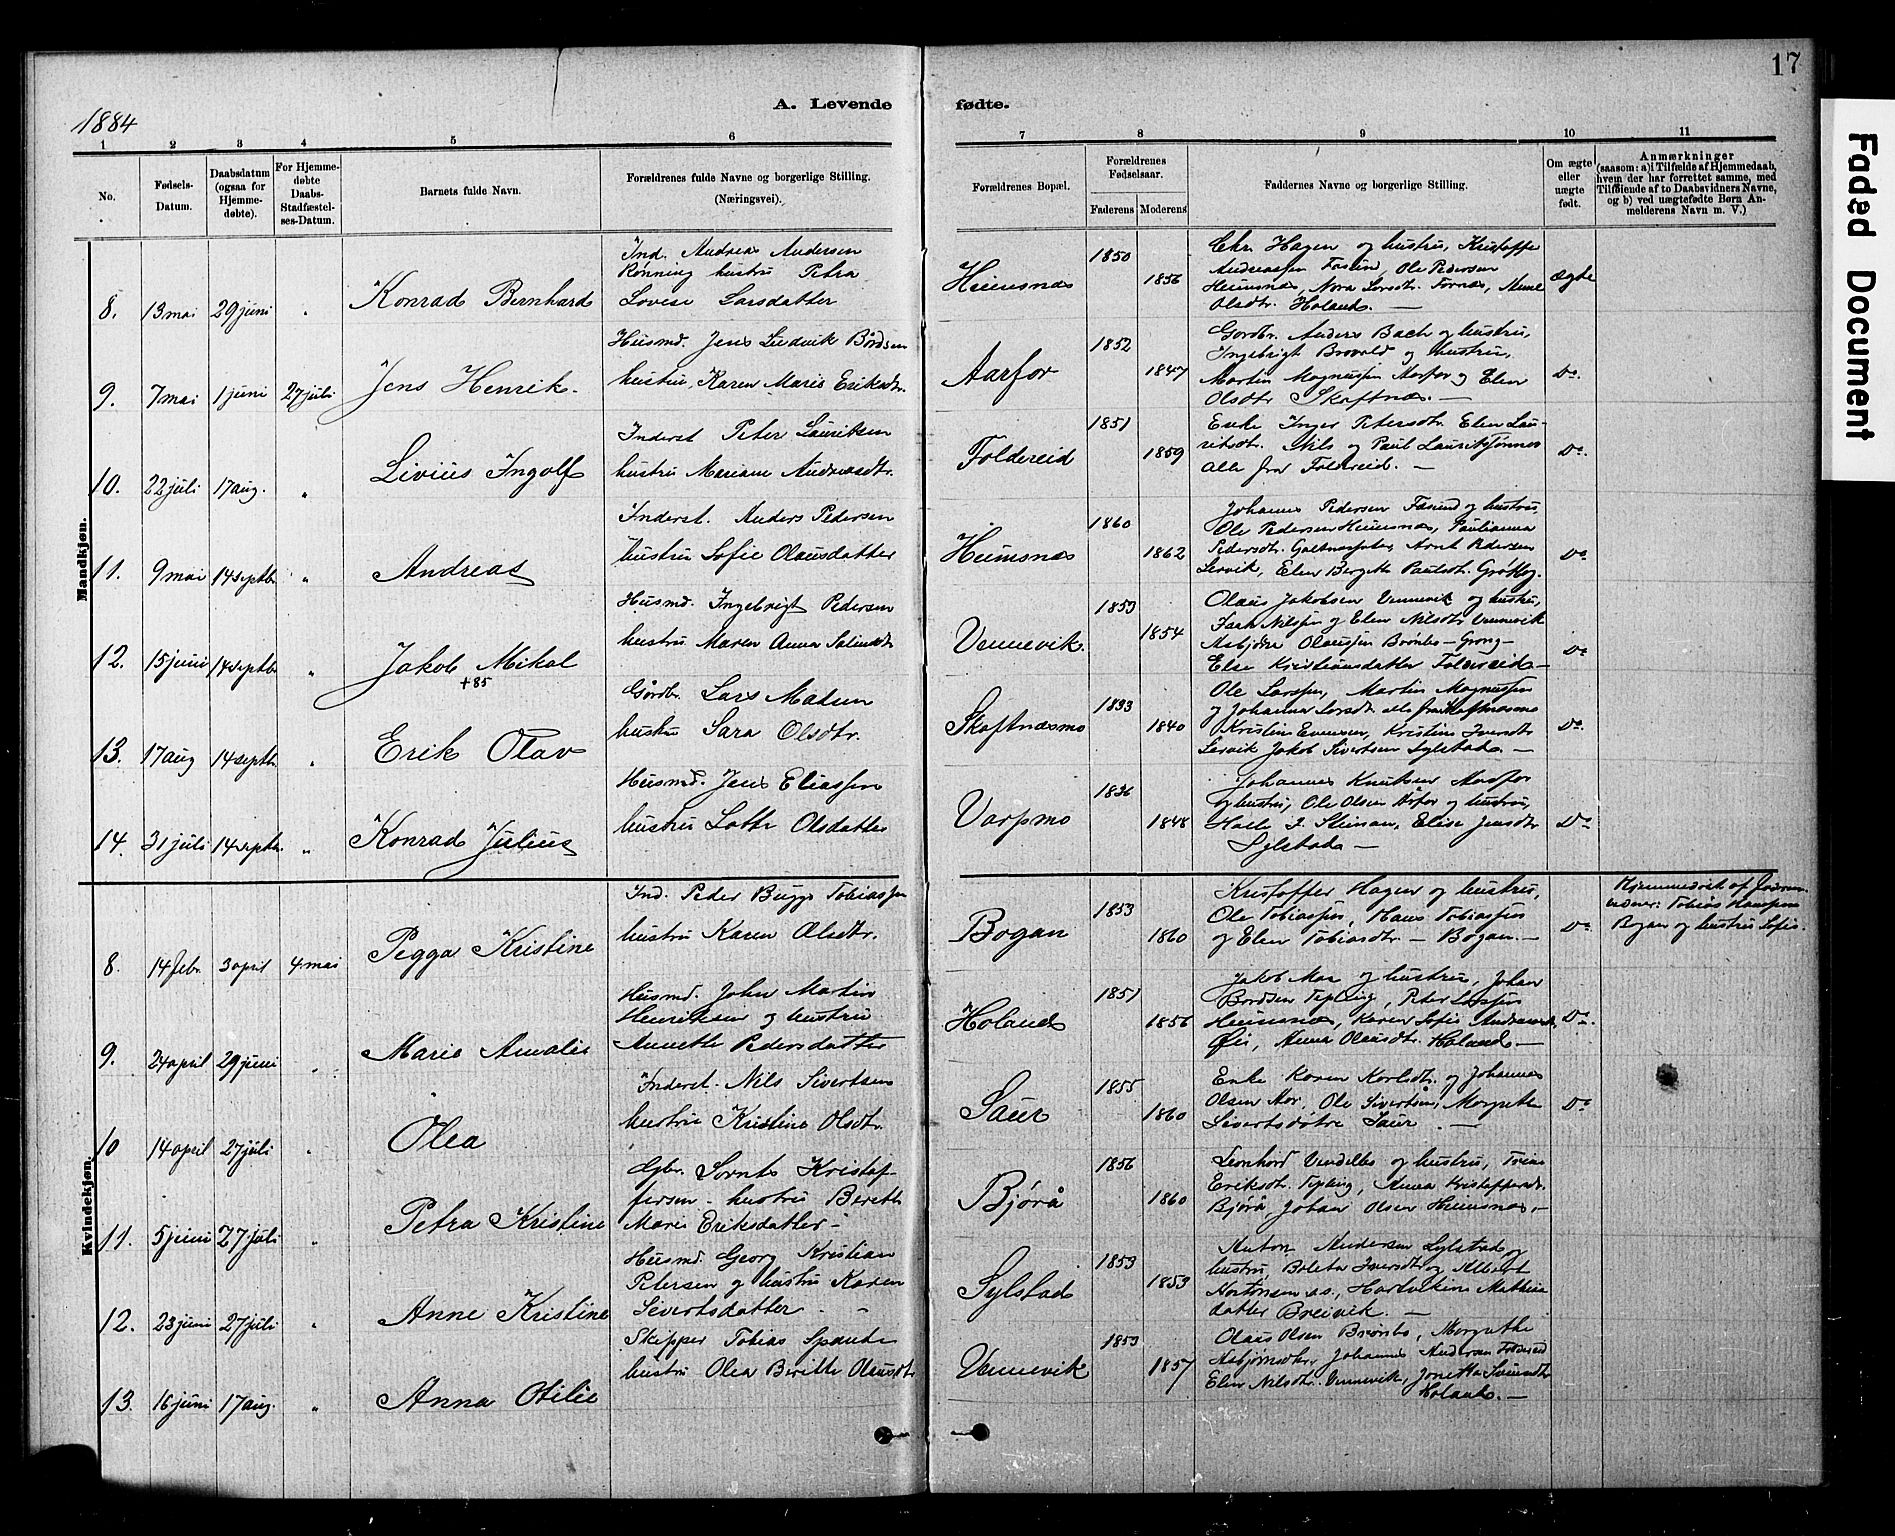 17
1884
A. Levende fødte.
1 2 3 4 5 6 7 8 9 10 11
No.
Fødsels-Datum.
Daabsdatum (ogsaa for Hjemme-døbte).
For Hjemme-døbte Daabs-Stadfæstel-ses-Datum.
Barnets fulde Navn.
Forældrenes fulde Navne og borgerlige Stilling. (Næringsvei).
Forældrenes Bopæl.
Forældrenes Fødselsaar.
Faderens Moderens
Faddernes Navne og borgerlige Stilling.
Om ægte eller uægte født.
Anmærkninger
(saasom: a) I Tilfælde af Hjemmedaab,
hvem der har forrettet samme, med
Tilføiende af to Daabsvidners Navne,
og b) ved uægtefødte Børn An-
melderens Navn m. V.)
Mandkjøn.
8. 13 mai 29 juni " Konrad Bernhard
Ind. Andreas Andersen
Rønning hustru Petra
Lovise Larsdatter
Heimsnæs 1850 1856
Chr. Hagen og hustru, Kristoffer
Andreassen Fasund, Ole Pedersen
Heimsnæs, Nora Larsdtr. Fornæs,
Olsdtr. Holand. —
ægte
9. 7 mai 1 juni 27 juli Jens Henrik
Husmd. Jens Ludvik Bårdsen
hustru, Karen Marie Eriksdtr.
Aarfor 1852 1847
Gårdbr. Anders Bach og hustru,
Ingebrigt Brovold og hustru,
Martin Magnussen Aarfor og Elen
Olsdtr Skaftnæs. —
Do.
10. 22 juli 17 aug. " Livius Ingolf
Inderst Peter Lauritsen
hustru Mariane Andreasdtr.
Foldereid 1851 1859
Enke Inger Petersdtr. Elen Lau-
ritsdtr. Nils og Paul Lauritssønner
alle fra Foldereid. —
Do.
11. 9 mai 14 septbr " Andreas
Inderst. Anders Pedersen
hustru Sofie Olausdatter
Heimsnæs 1860 1862
Johannes Pedersen Fasund og hustru,
Ole Pedersen Heimsnæs, Paulianna
Pedersdtr. Arnt Pedersen
Lervik, Elen Bergitte Paulsdtr.
Do
12. 15 juni 14 septbr " Jakob Mikal
+85
Husmd. Ingebrigt Pedersen
hustru Maren Anna
Vennevik 1853 1854
Olaus Jakobsen Vennevik og hustru,
Nilssen og Elen Nilsdtr Vennevik
Asbjørn Olaussen Brønbo – Grong –
Else Kristiansdatter Foldereid –
Do
13. 17 aug 14 septbr " Erik Olav
Gårdbr. Lars Matsen
hustru Sara Olsdtr.
Skaftnæsmo 1833 1840
Ole Larssen, Martin Magnussen
og Johanna Larsdtr alle fra Skaftnæsmo
Kristine Evensen, Kristine Iversdtr
Lervik Jakob Sivertsen Sylstad. —
Do.
14. 31 juli 14 septbr " Konrad Julius
Husmd. Jens Eliassen
hustru Lotte Olsdatter
Varpmo 1836 1848
Johannes Knutsen Aarfor
og hustru, Ole Olsen Årfor og hustru,
Elise Jensdtr
Sylstad. —
Do
Kvindekjøn.
8. 14 febr. 3 april 4 mai Pegga Kristine
Ind. Peder Bugge Tobiassen
hustru Karen Olsdtr.
Bogan 1853 1860
Kristoffer Hagen og hustru,
Ole Tobiassen, Hans Tobiassen
og Elen Tobiasdtr. – Bogan. –
Do
Hjemmedøbt af
Tobias Hanssen
Bogan og hustru Sofie.
9. 24 april 29 juni " Marie Amalie
Husmd. John Martin
Henriksen og hustru
Annette Pedersdatter
Holand 1851 1856
Jakob Moe og hustru, Johan
Bordsen Tepling, Peter Larssen
Heimsnæs, Karen Sofie Andreasdtr,
Øie, Anna Olausdtr. Holand —
Do.
10 14 april 27 juli " Olea
Inderst. Nils Sivertsen
hustru Kristine Olsdtr.
Saur 1855 1860
Enke Karen Karlsdtr. og Johannes
Olsen Ole Sivertsen, Margrethe
Sivertsdøtre Saur. —
Do
11. 5 juni 27 juli " Petra Kristine
Gbr. Lornts Kristof-
fersen – hustru Berette
Marie Eriksdatter –
Bjørå 1856 1860
Leonhard Vendelbo og hustru, Trine
Eriksdtr. Tepling, Anna Kristoffersdtr.
Bjørå, Johan Olsen Heimsnæs. –
12. 23 juni 27 juli " Anne Kristine
Husmd. Georg Kristian
Petersen og hustru Karen
Sivertsdatter –
Sylstad 1853 1853
Anton Andersen Sylstad og
hustru, Boleta Iversdtr og Albert
Hartvikine Mathias
datter Breivik. —
13. 16 juni 17 aug. " Anna Otilie
Skipper Tobias Spande
hustru Olea Beritte Olausdtr
Vennevik 1853 1857
Olaus Olsen Brønbo, Margrethe
Asbjørnsdtr, Johannes Andersen Foldereid
Elen Nilsdtr. Vennevik, Jonetta Svensdtr
Holand. —
Faded Document